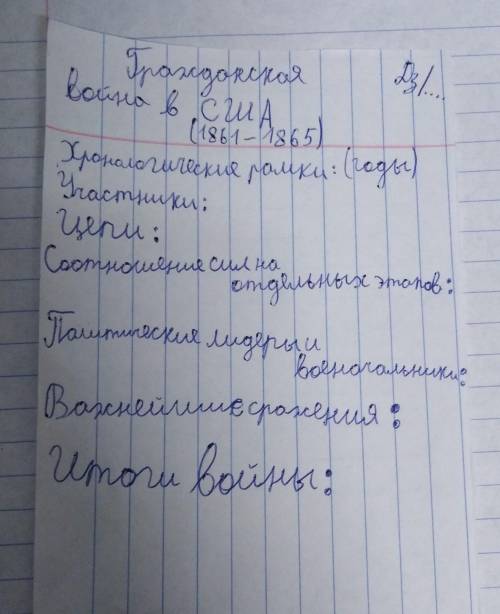 Гражданская
Дз/...
война в США
(1861-1865)
Хронологические рамки: (годы)
Участники:
Цели:
Соотношение сил на
отдельных этапов:
Политические лидеры и
военочальники:
Важнейшие сражения:
Итоги войны: